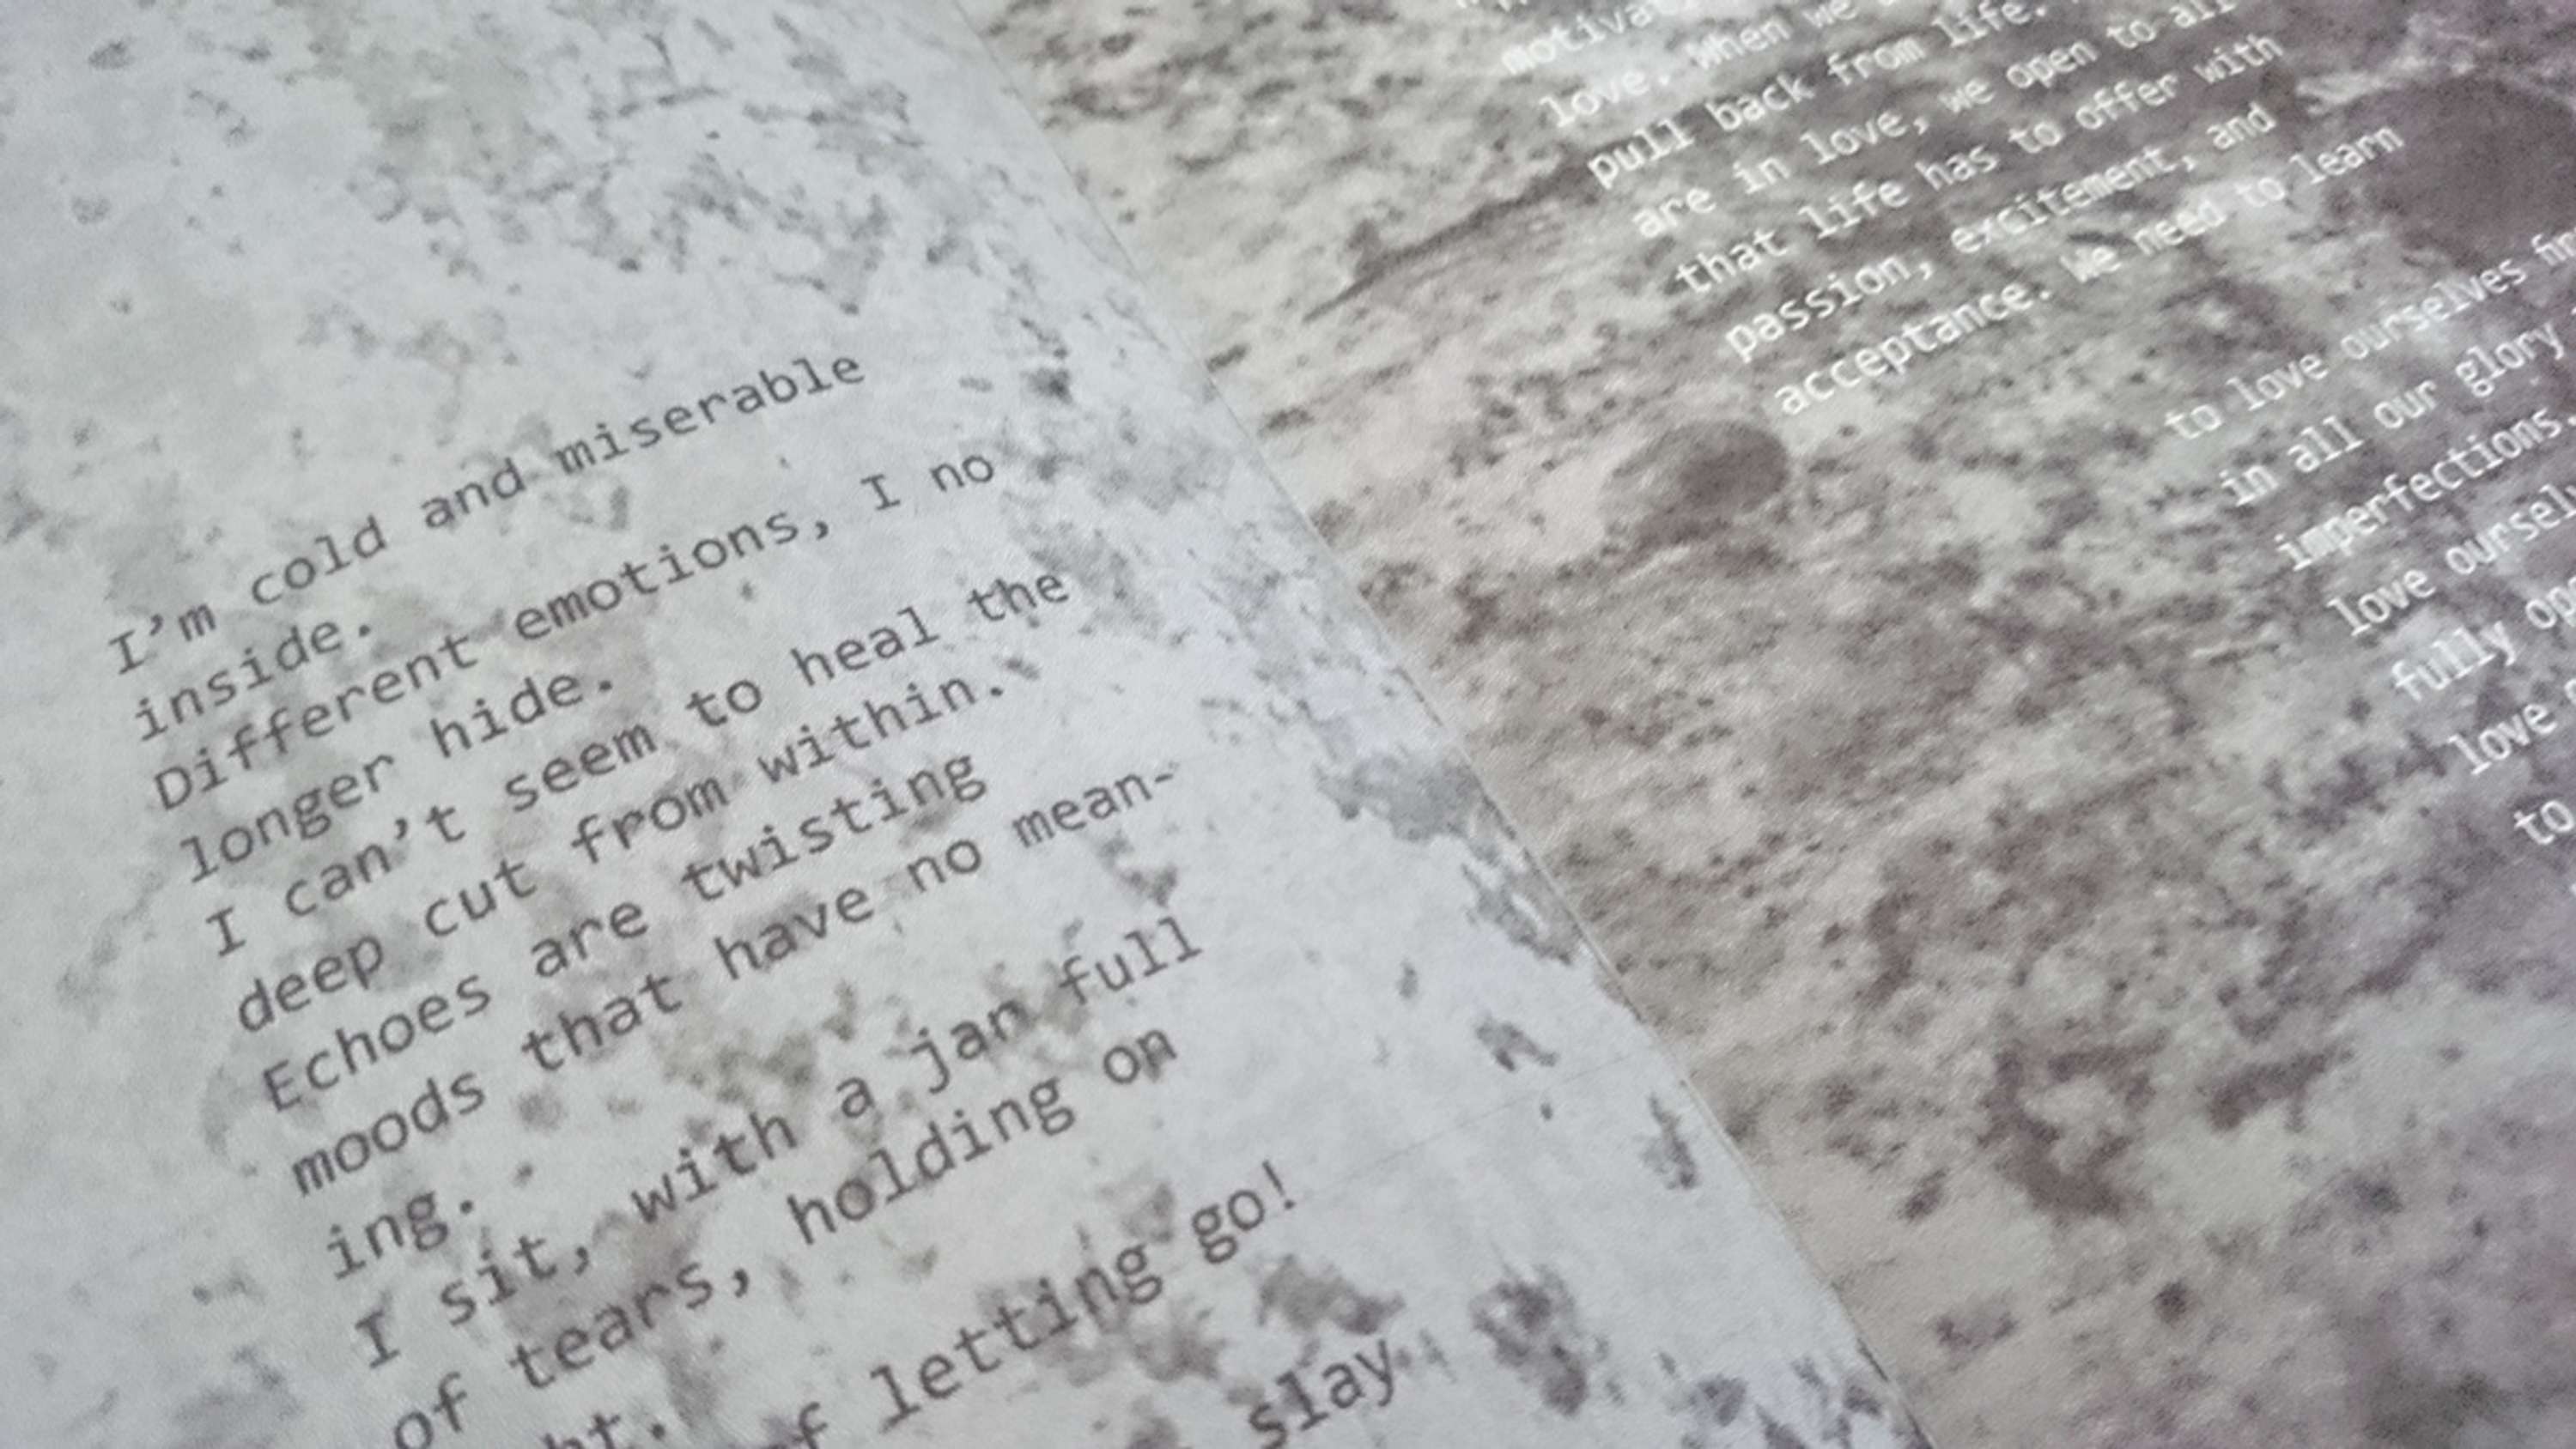 I'm cold and miserable
inside.
Different emotions, I no
longer hide.
I can't seem to heal the
deep cut from within.
Echoes are twisting
moods that have no mean-
ing.
I sit, with a jar full
of tears, holding on
letting go!
slay
love, when we
pull back from life.
are in love, we open to all
that life has to offer with
passion, excitement, and
acceptance. We need to learn
to love ourselves
in all our glory
imperfections.
love
fully
love
to